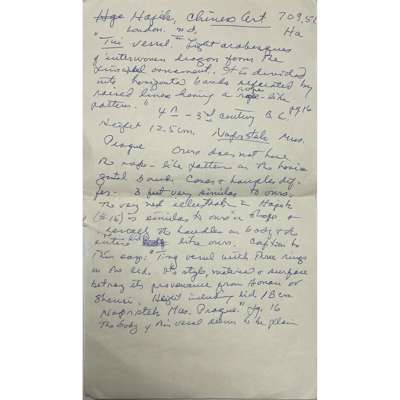 Hajek, Chinese Art 709.51
London. n.d. Ha
"Tui vessel." "Light arabesques
of interwoven dragon forms the
principal ornament. It is divided
into horizontal bands separated by
raised lines having a rope-like
pattern." pg 16
4th - 3rd century B.C.
Height 12.5cm. Naprstek Mus.
Prague Ours does not have
the rope-like pattern on the horiz-
ontal bands. Cover & handles dif-
fer. 3 feet very similar to ours.
The very next illustration in Hajek
(#16) is similar to ours in shape
the handles on body & the
entire like ours. Caption to
this says: "Ting vessel with three rings
on its lid. Its style, material & surface
betray its provenance from Honan or
Shansi. Height including lid 18 cm
Naprstek Mus. Prague." pg. 16
The body of this vessel seems to be plain